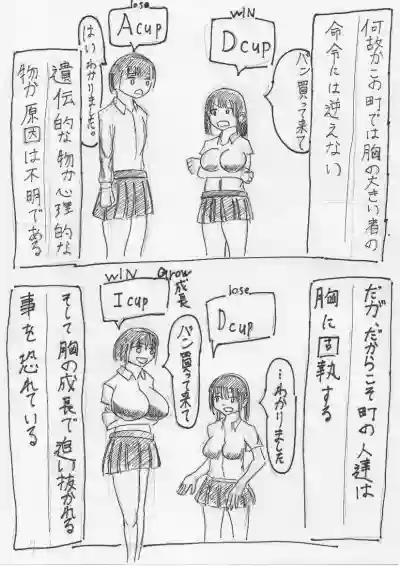 何故かこの町では胸の大きい者の
命令には逆えない
WIN
Dcup
パン買って来て
lose
Acup
はいわかりました。
遺伝的な物か心理的な
物か原因は不明である
だがだからこそ町の人達は
胸に固執する
lose
Dcup
…わかりました
Grow
成長
WIN
Icup
パン買って来て
そして胸の成長で追い抜かれる
事を恐れている